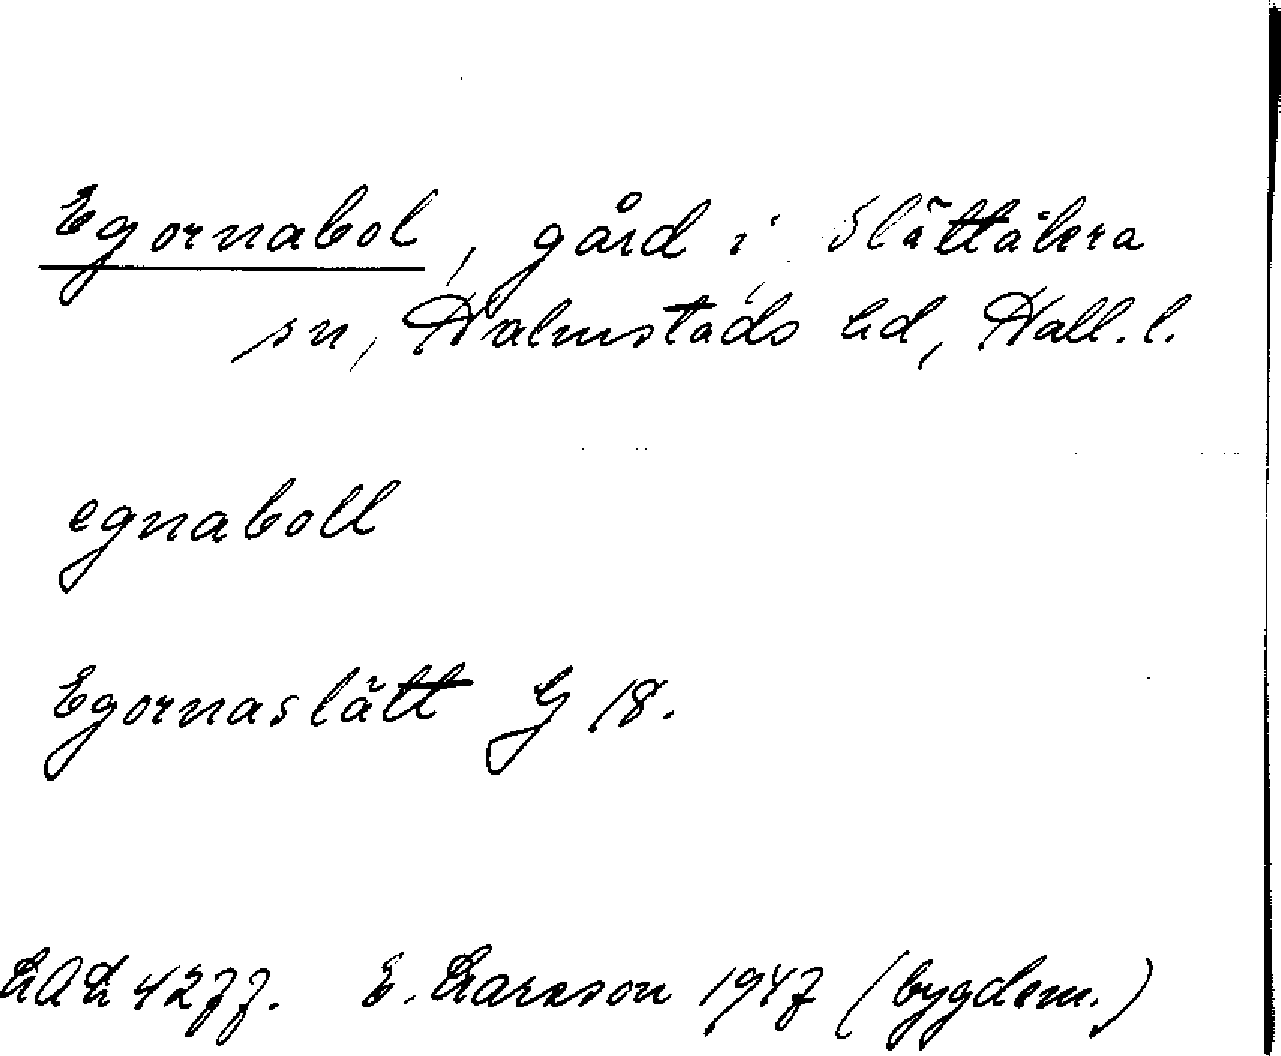 Egornabol, gård i Slättåkra
sn, Halmstads hd, Hall. l.
egnaboll
Egornaslätt G 18.
LAL 4277. E. Larsson 1947 (bygdem.)